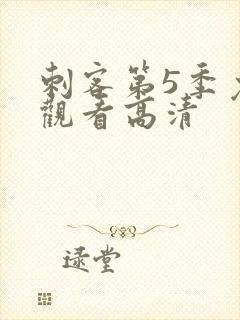 刺客第5季
觀看高清
逯堂